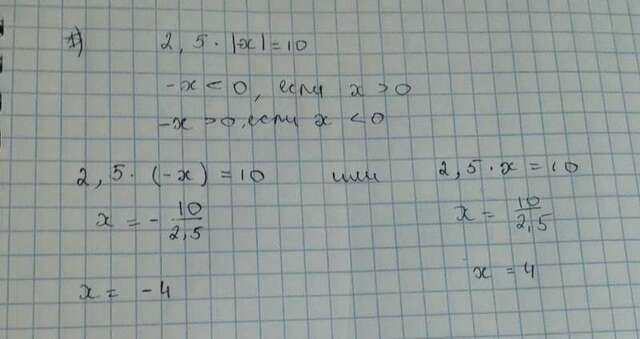 1) 2,5 · |x| = 10
-x < 0, если x > 0
-x > 0, если x < 0
2,5 · (-x) = 10 или 2,5 · x = 10
x = - 10/2,5 x = 10/2,5
x = -4 x = 4